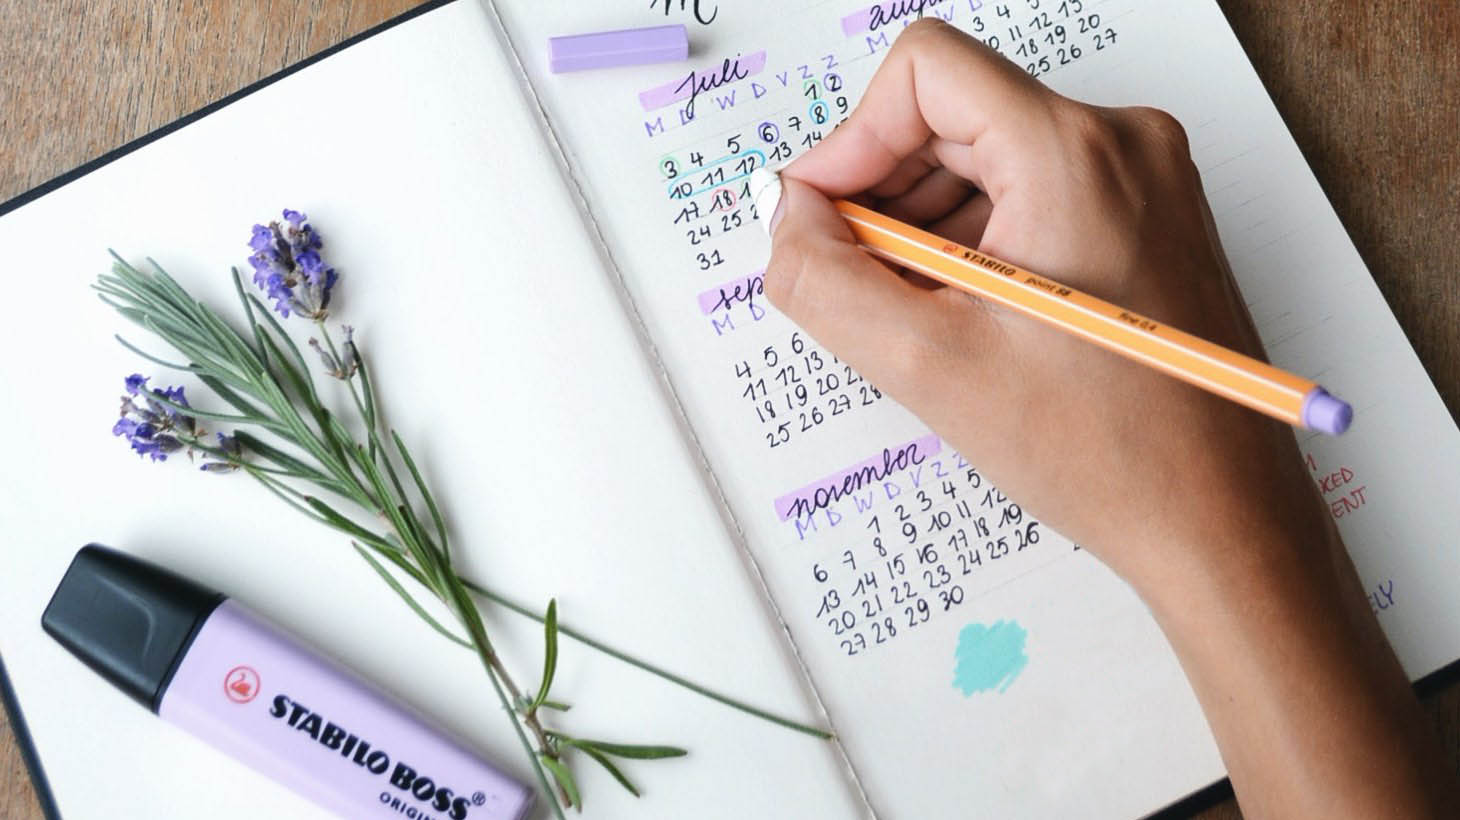 juli
M D W D V Z Z
1 2
3 4 5 6 7 8 9
10 11 12 13 14
17 18
24 25
31
M W D
3 4
10 11 12 13
18 19 20
25 26 27
sep
M D
4 5 6
11 12 13
18 19 20
25 26 27 28
november
M D W D V Z Z
1 2 3 4 5
6 7 8 9 10 11 12
13 14 15 16 17 18 19
20 21 22 23 24 25 26
27 28 29 30
STABILO point 88 fine 0,4
STABILO BOSS®
ORIGIN